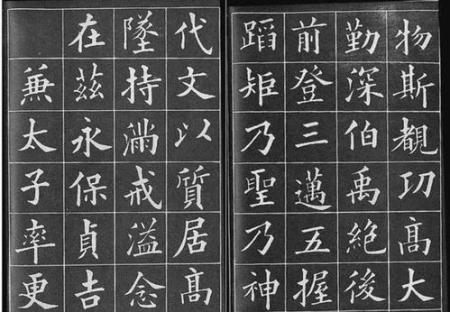 物斯覩功高大
勤深伯禹絶後
前登三邁五握
蹈矩乃聖乃神
代文以質居高
墜持滿戒溢念
在茲永保貞吉
兼太子率更